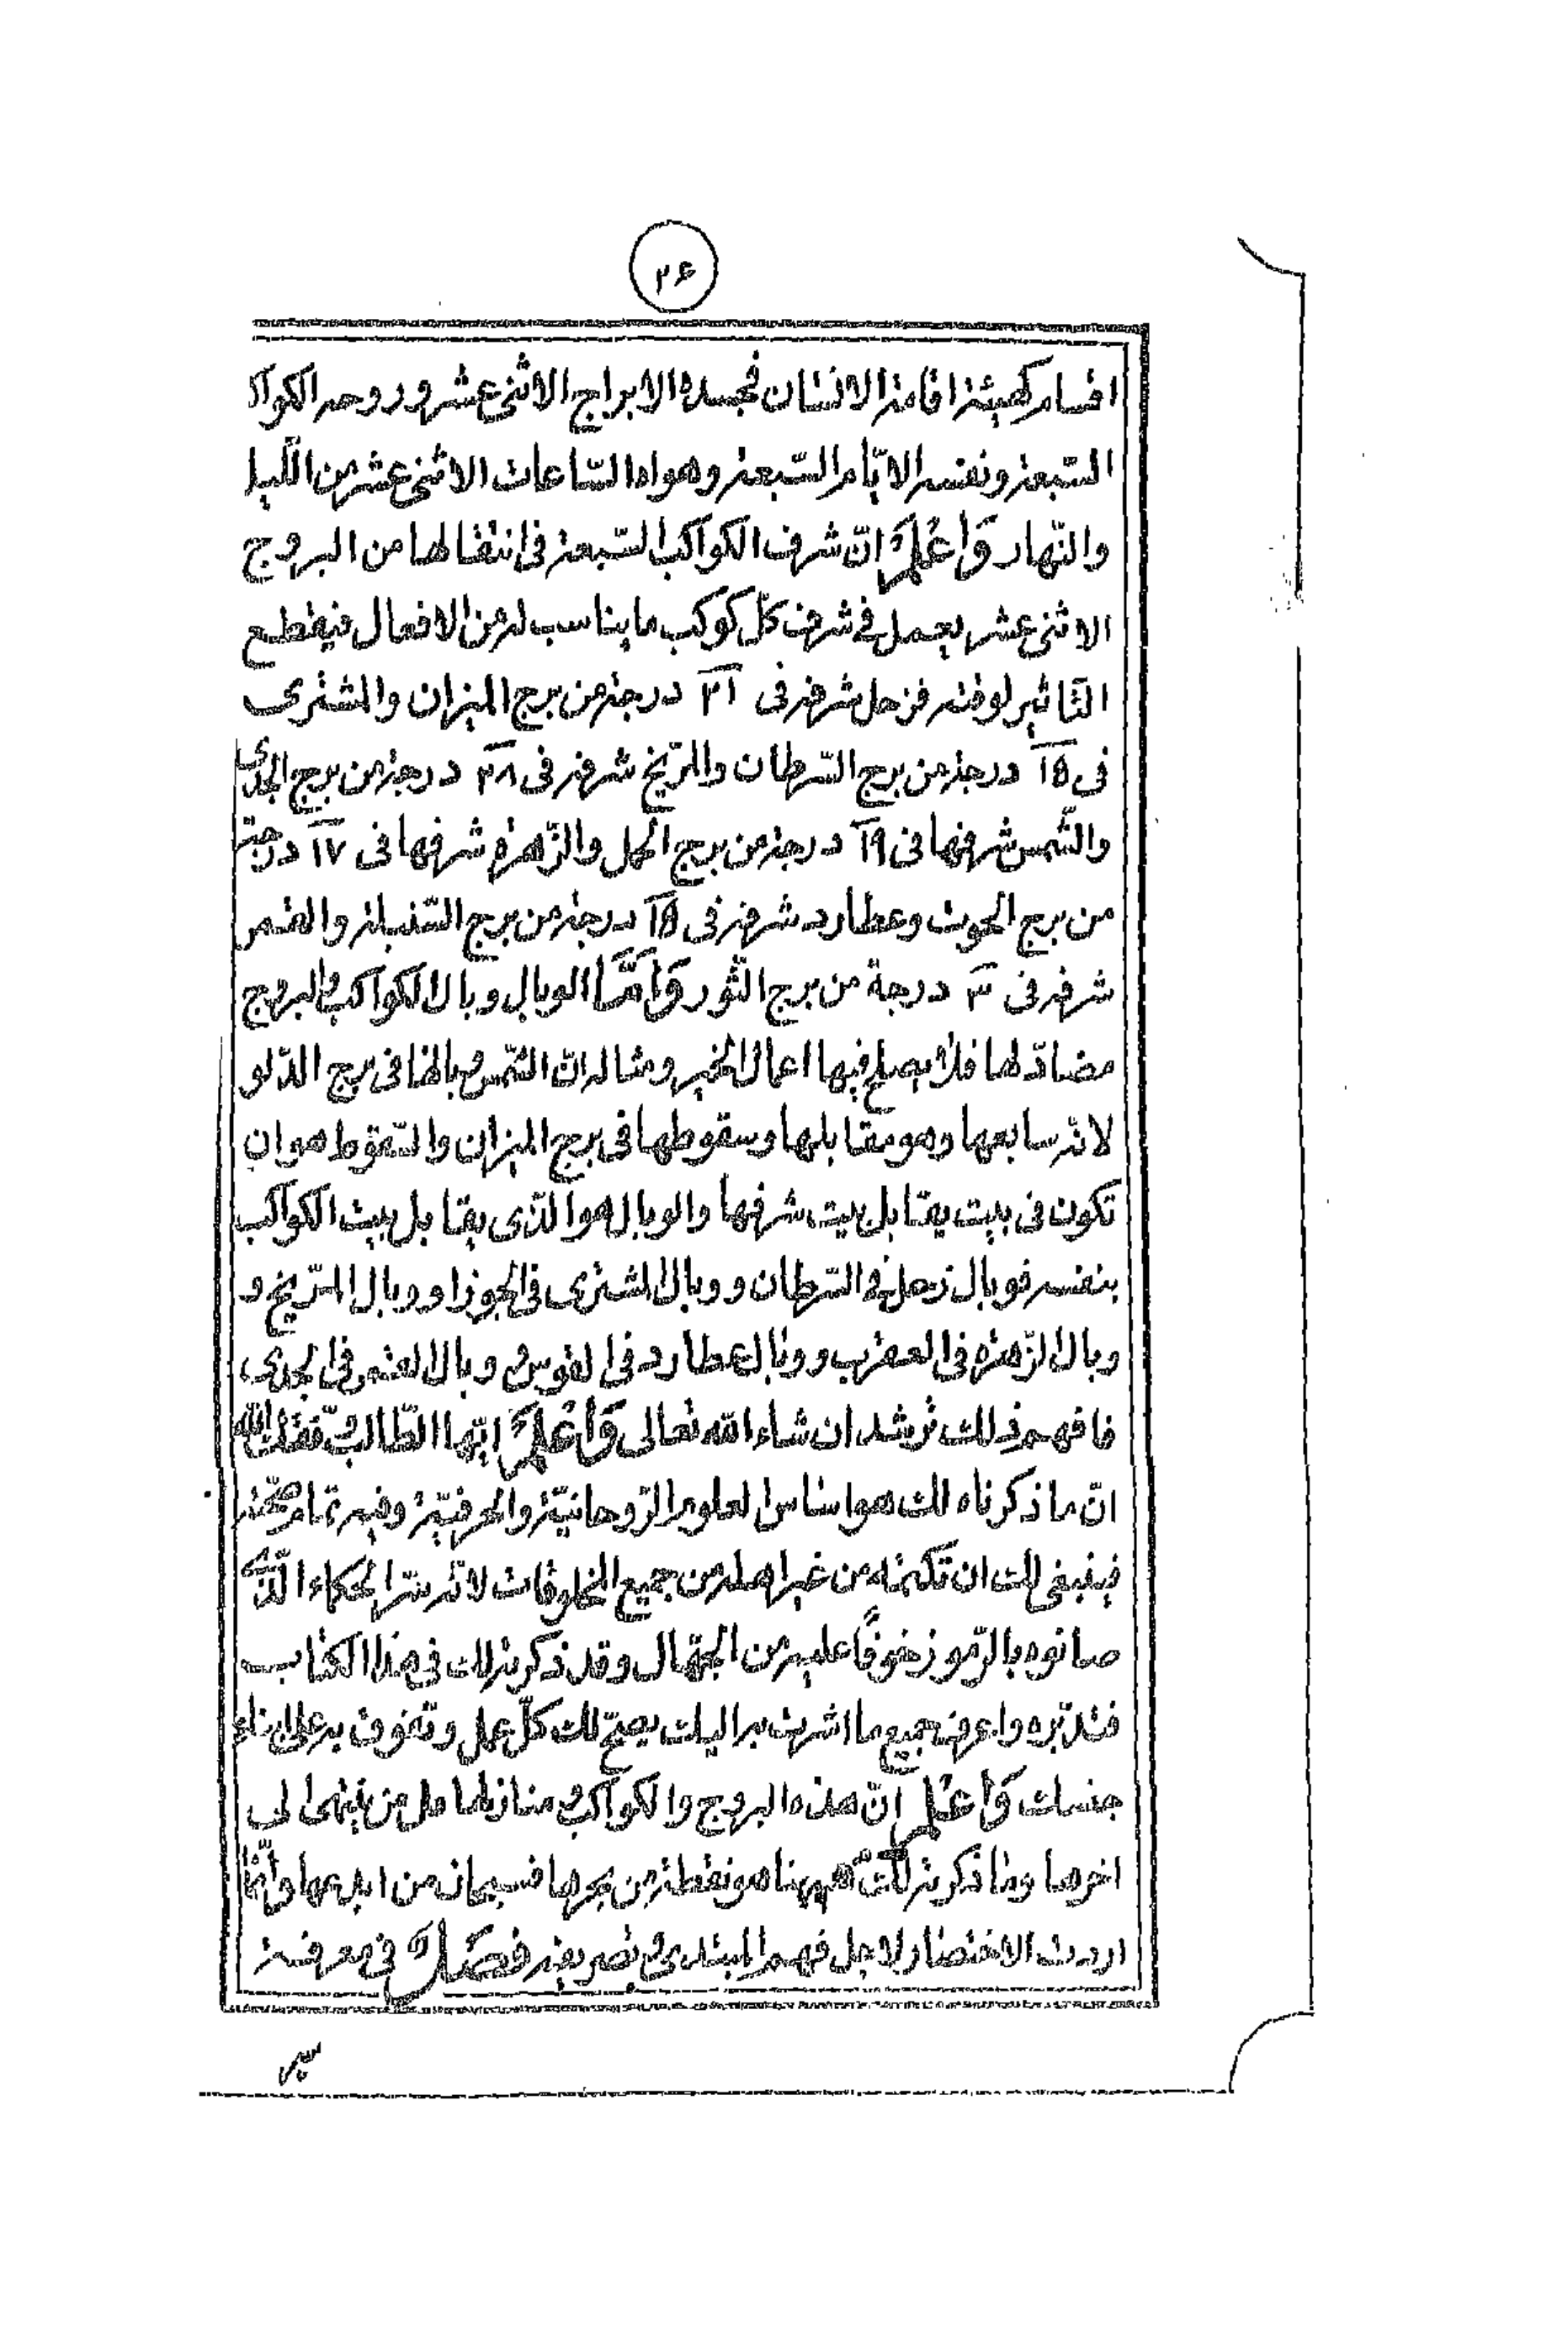 ۲۶
اقسام كهيئة اقامة الانسان فجسده الابراج الاثنى عشر وروحه الكواكب
السّبعة ونفسه الايّام السّبعة وهواه السّاعات الاثنى عشر من اللّيل
والنّهار وَاعْلَمْ انّ شرف الكواكب السّبعة فى انتقالها من البروج
الاثنى عشر يعمل فى شرف كلّ كوكب ما يناسب له من الافعال فيقطع
التّاثير لوقته فزحل شرفه فى ۲۱ درجة من برج الميزان والمشترى
فى ۱۵ درجة من برج السّرطان والمرّيخ شرفه فى ۲۸ درجة من برج الجدى
والشّمس شرفها فى ۱۹ درجة من برج الحمل والزّهرة شرفها فى ۱۷ درجة
من برج الحوت وعطارد شرفه فى ۱۵ درجة من برج السّنبلة والقمر
شرفه فى ۳ درجة من برج الثّور وَاَمَّا الوبال وبال الكواكب والبروج
مضادّ لها فلا يصلح فيها اعمال الخير ومثاله انّ الشّمس وبالها فى برج الدّلو
لانّه سابعها وهو مقابلها وسقوطها فى برج الميزان والسّقوط هو ان
تكون فى بيت يقابل بيت شرفها والوبال هو الذى يقابل بيت الكواكب
بنفسه فوبال زحل فى السّرطان ووبال المشترى فى الجوزا ووبال المرّيخ و
وبال الزّهرة فى العقرب ووبال عطارد فى القوس ووبال القمر فى الجدى
فافهم ذلك ترشد ان شاء الله تعالى وَاعْلَمْ ايّها الطّالب وفّقك الله
انّ ما ذكرناه لك هو اساس العلوم الرّوحانيّة والحرفيّة وفيه تمام صحّته
فينبغى لك ان تكتمه من غير اهله من جميع المخلوقات لانّه سرّ الحكماء الّذى
صانوه بالرّموز خوفًا عليه من الجهّال وقد ذكرته لك فى هذا الكتاب
فتدبّره واعرف جميع ما اشرت به اليك يصحّ لك كلّ عمل وتفوق به على ابناء
جنسك وَاعْلَمْ انّ هذه البروج والكواكب ومنازلها هل من ينتهى الى
اخرها وما ذكرته لك ههنا هو نقطة من بحرها فسبحان من ابدعها وانّما
اردت الاختصار لاجل فهم المبتدى وتصريفه فَصْلٌ فى معرفة